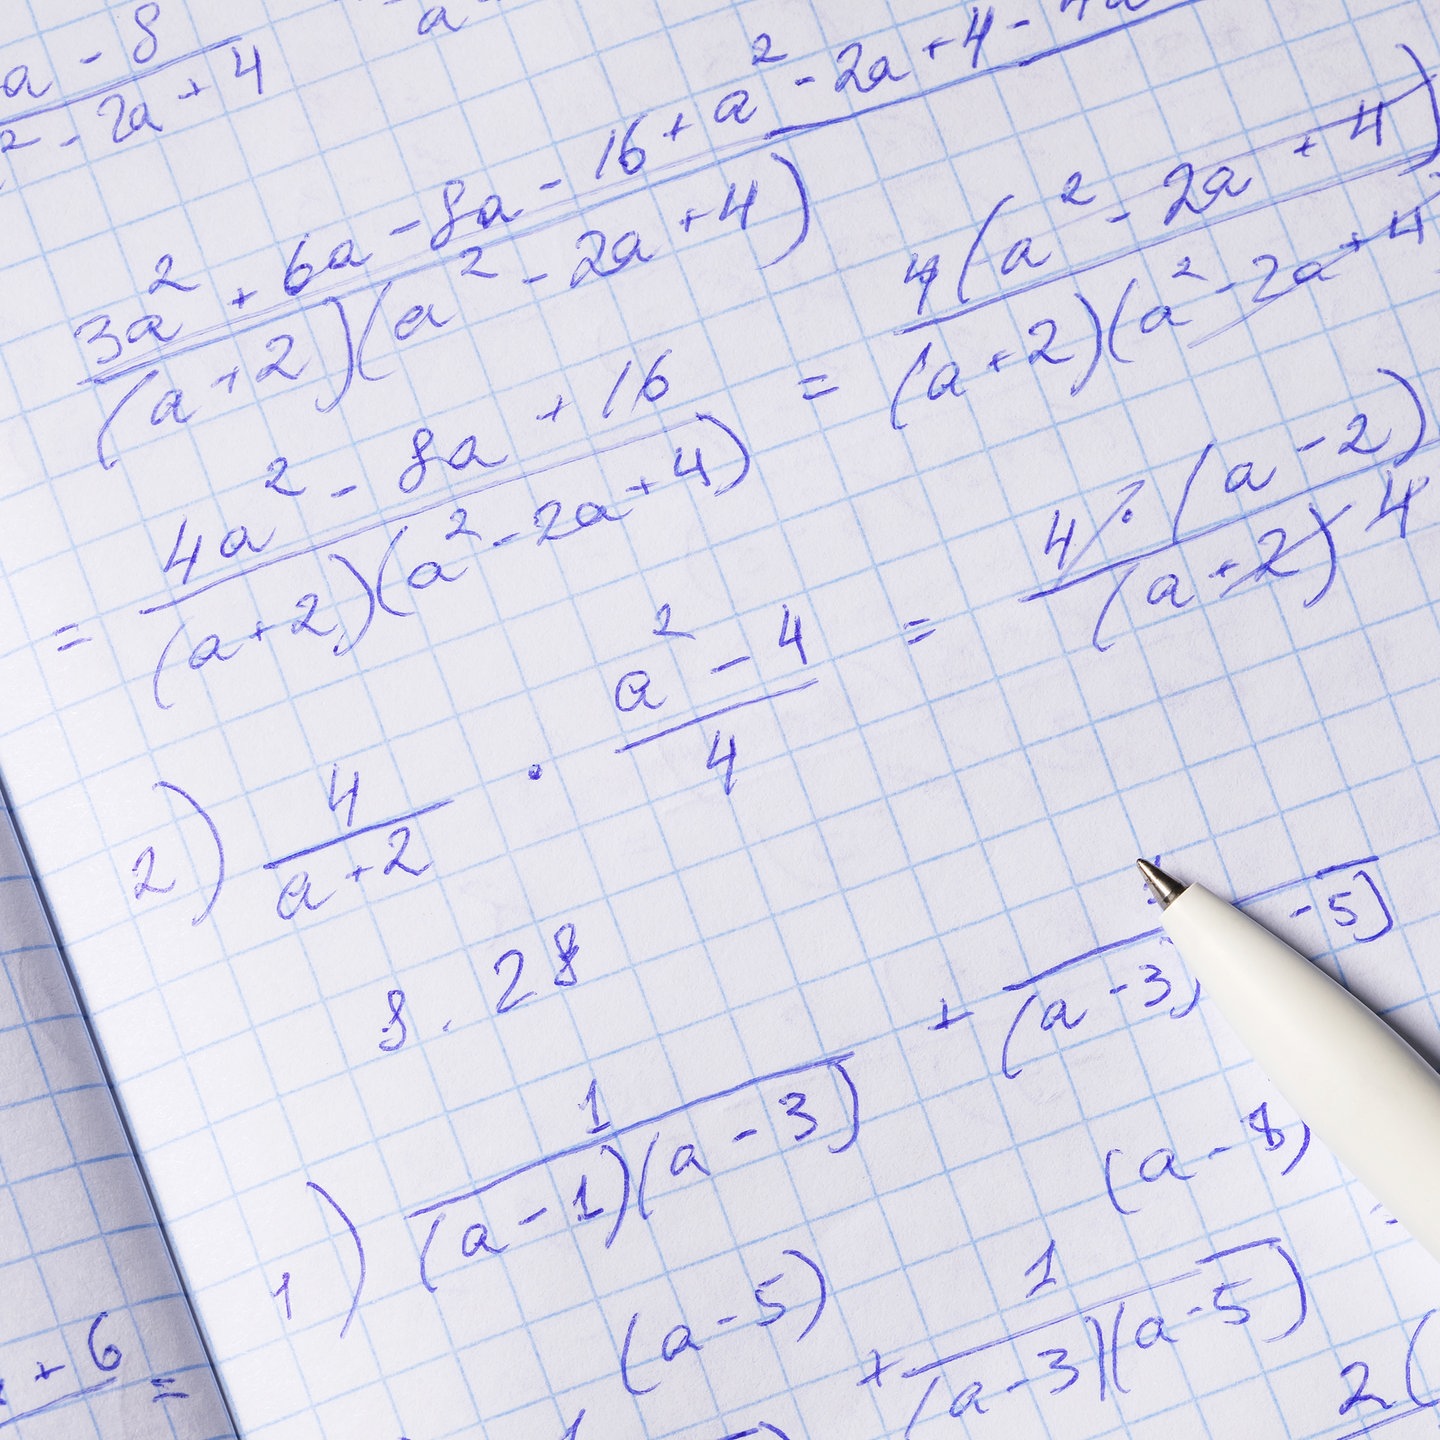 a - 8
a
² - 2a + 4
3a² + 6a - 8a - 16 + a² - 2a + 4 - 4a
(a + 2)(a² - 2a + 4)
= 4a² - 8a + 16
(a + 2)(a² - 2a + 4)
= 4(a² - 2a + 4)
(a + 2)(a² - 2a + 4)
2) 4 · a² - 4 = 4 · (a - 2)
a + 2 4 (a + 2) 4
8. 28
1) 1 + - 5)
(a - 1)(a - 3) (a - 3)
(a - 5) (a - 8)
+ 1 =
(a - 3)(a - 5)
+ 6 =
2(